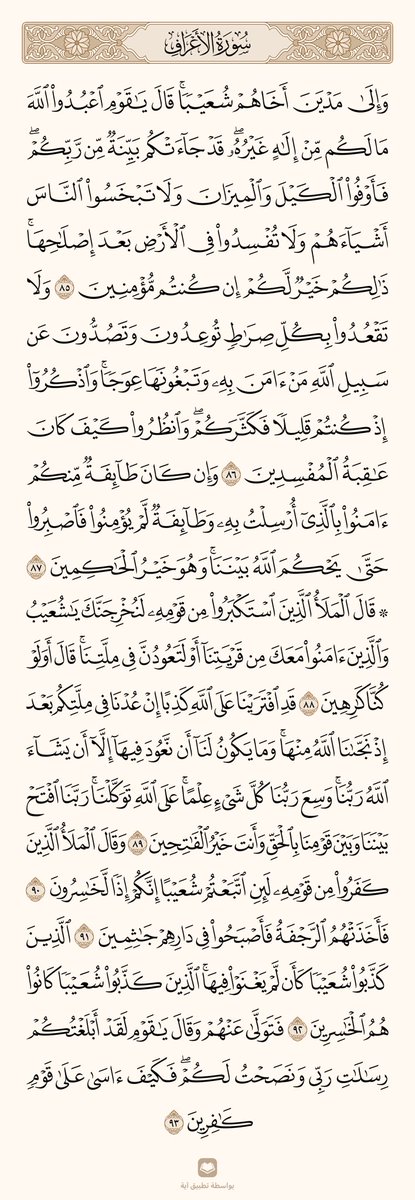 سُورَةُ الأَعْرَافِ
وَإِلَىٰ مَدْيَنَ أَخَاهُمْ شُعَيْبًاۚ قَالَ يَٰقَوْمِ ٱعْبُدُوا۟ ٱللَّهَ
مَا لَكُم مِّنْ إِلَٰهٍ غَيْرُهُۥۖ قَدْ جَآءَتْكُم بَيِّنَةٌ مِّن رَّبِّكُمْۖ
فَأَوْفُوا۟ ٱلْكَيْلَ وَٱلْمِيزَانَ وَلَا تَبْخَسُوا۟ ٱلنَّاسَ
أَشْيَآءَهُمْ وَلَا تُفْسِدُوا۟ فِى ٱلْأَرْضِ بَعْدَ إِصْلَٰحِهَاۚ
ذَٰلِكُمْ خَيْرٌ لَّكُمْ إِن كُنتُم مُّؤْمِنِينَ ٨٥ وَلَا
تَقْعُدُوا۟ بِكُلِّ صِرَٰطٍ تُوعِدُونَ وَتَصُدُّونَ عَن
سَبِيلِ ٱللَّهِ مَنْ ءَامَنَ بِهِۦ وَتَبْغُونَهَا عِوَجًاۚ وَٱذْكُرُوٓا۟
إِذْ كُنتُمْ قَلِيلًا فَكَثَّرَكُمْۖ وَٱنظُرُوا۟ كَيْفَ كَانَ
عَٰقِبَةُ ٱلْمُفْسِدِينَ ٨٦ وَإِن كَانَ طَآئِفَةٌ مِّنكُمْ
ءَامَنُوا۟ بِٱلَّذِىٓ أُرْسِلْتُ بِهِۦ وَطَآئِفَةٌ لَّمْ يُؤْمِنُوا۟ فَٱصْبِرُوا۟
حَتَّىٰ يَحْكُمَ ٱللَّهُ بَيْنَنَاۚ وَهُوَ خَيْرُ ٱلْحَٰكِمِينَ ٨٧
۞ قَالَ ٱلْمَلَأُ ٱلَّذِينَ ٱسْتَكْبَرُوا۟ مِن قَوْمِهِۦ لَنُخْرِجَنَّكَ يَٰشُعَيْبُ
وَٱلَّذِينَ ءَامَنُوا۟ مَعَكَ مِن قَرْيَتِنَآ أَوْ لَتَعُودُنَّ فِى مِلَّتِنَاۚ قَالَ أَوَلَوْ
كُنَّا كَٰرِهِينَ ٨٨ قَدِ ٱفْتَرَيْنَا عَلَى ٱللَّهِ كَذِبًا إِنْ عُدْنَا فِى مِلَّتِكُم بَعْدَ
إِذْ نَجَّىٰنَا ٱللَّهُ مِنْهَاۚ وَمَا يَكُونُ لَنَآ أَن نَّعُودَ فِيهَآ إِلَّآ أَن يَشَآءَ
ٱللَّهُ رَبُّنَاۚ وَسِعَ رَبُّنَا كُلَّ شَىْءٍ عِلْمًاۚ عَلَى ٱللَّهِ تَوَكَّلْنَاۚ رَبَّنَا ٱفْتَحْ
بَيْنَنَا وَبَيْنَ قَوْمِنَا بِٱلْحَقِّ وَأَنتَ خَيْرُ ٱلْفَٰتِحِينَ ٨٩ وَقَالَ ٱلْمَلَأُ ٱلَّذِينَ
كَفَرُوا۟ مِن قَوْمِهِۦ لَئِنِ ٱتَّبَعْتُمْ شُعَيْبًا إِنَّكُمْ إِذًا لَّخَٰسِرُونَ ٩٠
فَأَخَذَتْهُمُ ٱلرَّجْفَةُ فَأَصْبَحُوا۟ فِى دَارِهِمْ جَٰثِمِينَ ٩١ ٱلَّذِينَ
كَذَّبُوا۟ شُعَيْبًا كَأَن لَّمْ يَغْنَوْا۟ فِيهَاۚ ٱلَّذِينَ كَذَّبُوا۟ شُعَيْبًا كَانُوا۟
هُمُ ٱلْخَٰسِرِينَ ٩٢ فَتَوَلَّىٰ عَنْهُمْ وَقَالَ يَٰقَوْمِ لَقَدْ أَبْلَغْتُكُمْ
رِسَٰلَٰتِ رَبِّى وَنَصَحْتُ لَكُمْۖ فَكَيْفَ ءَاسَىٰ عَلَىٰ قَوْمٍ
كَٰفِرِينَ ٩٣
بواسطة تطبيق آية